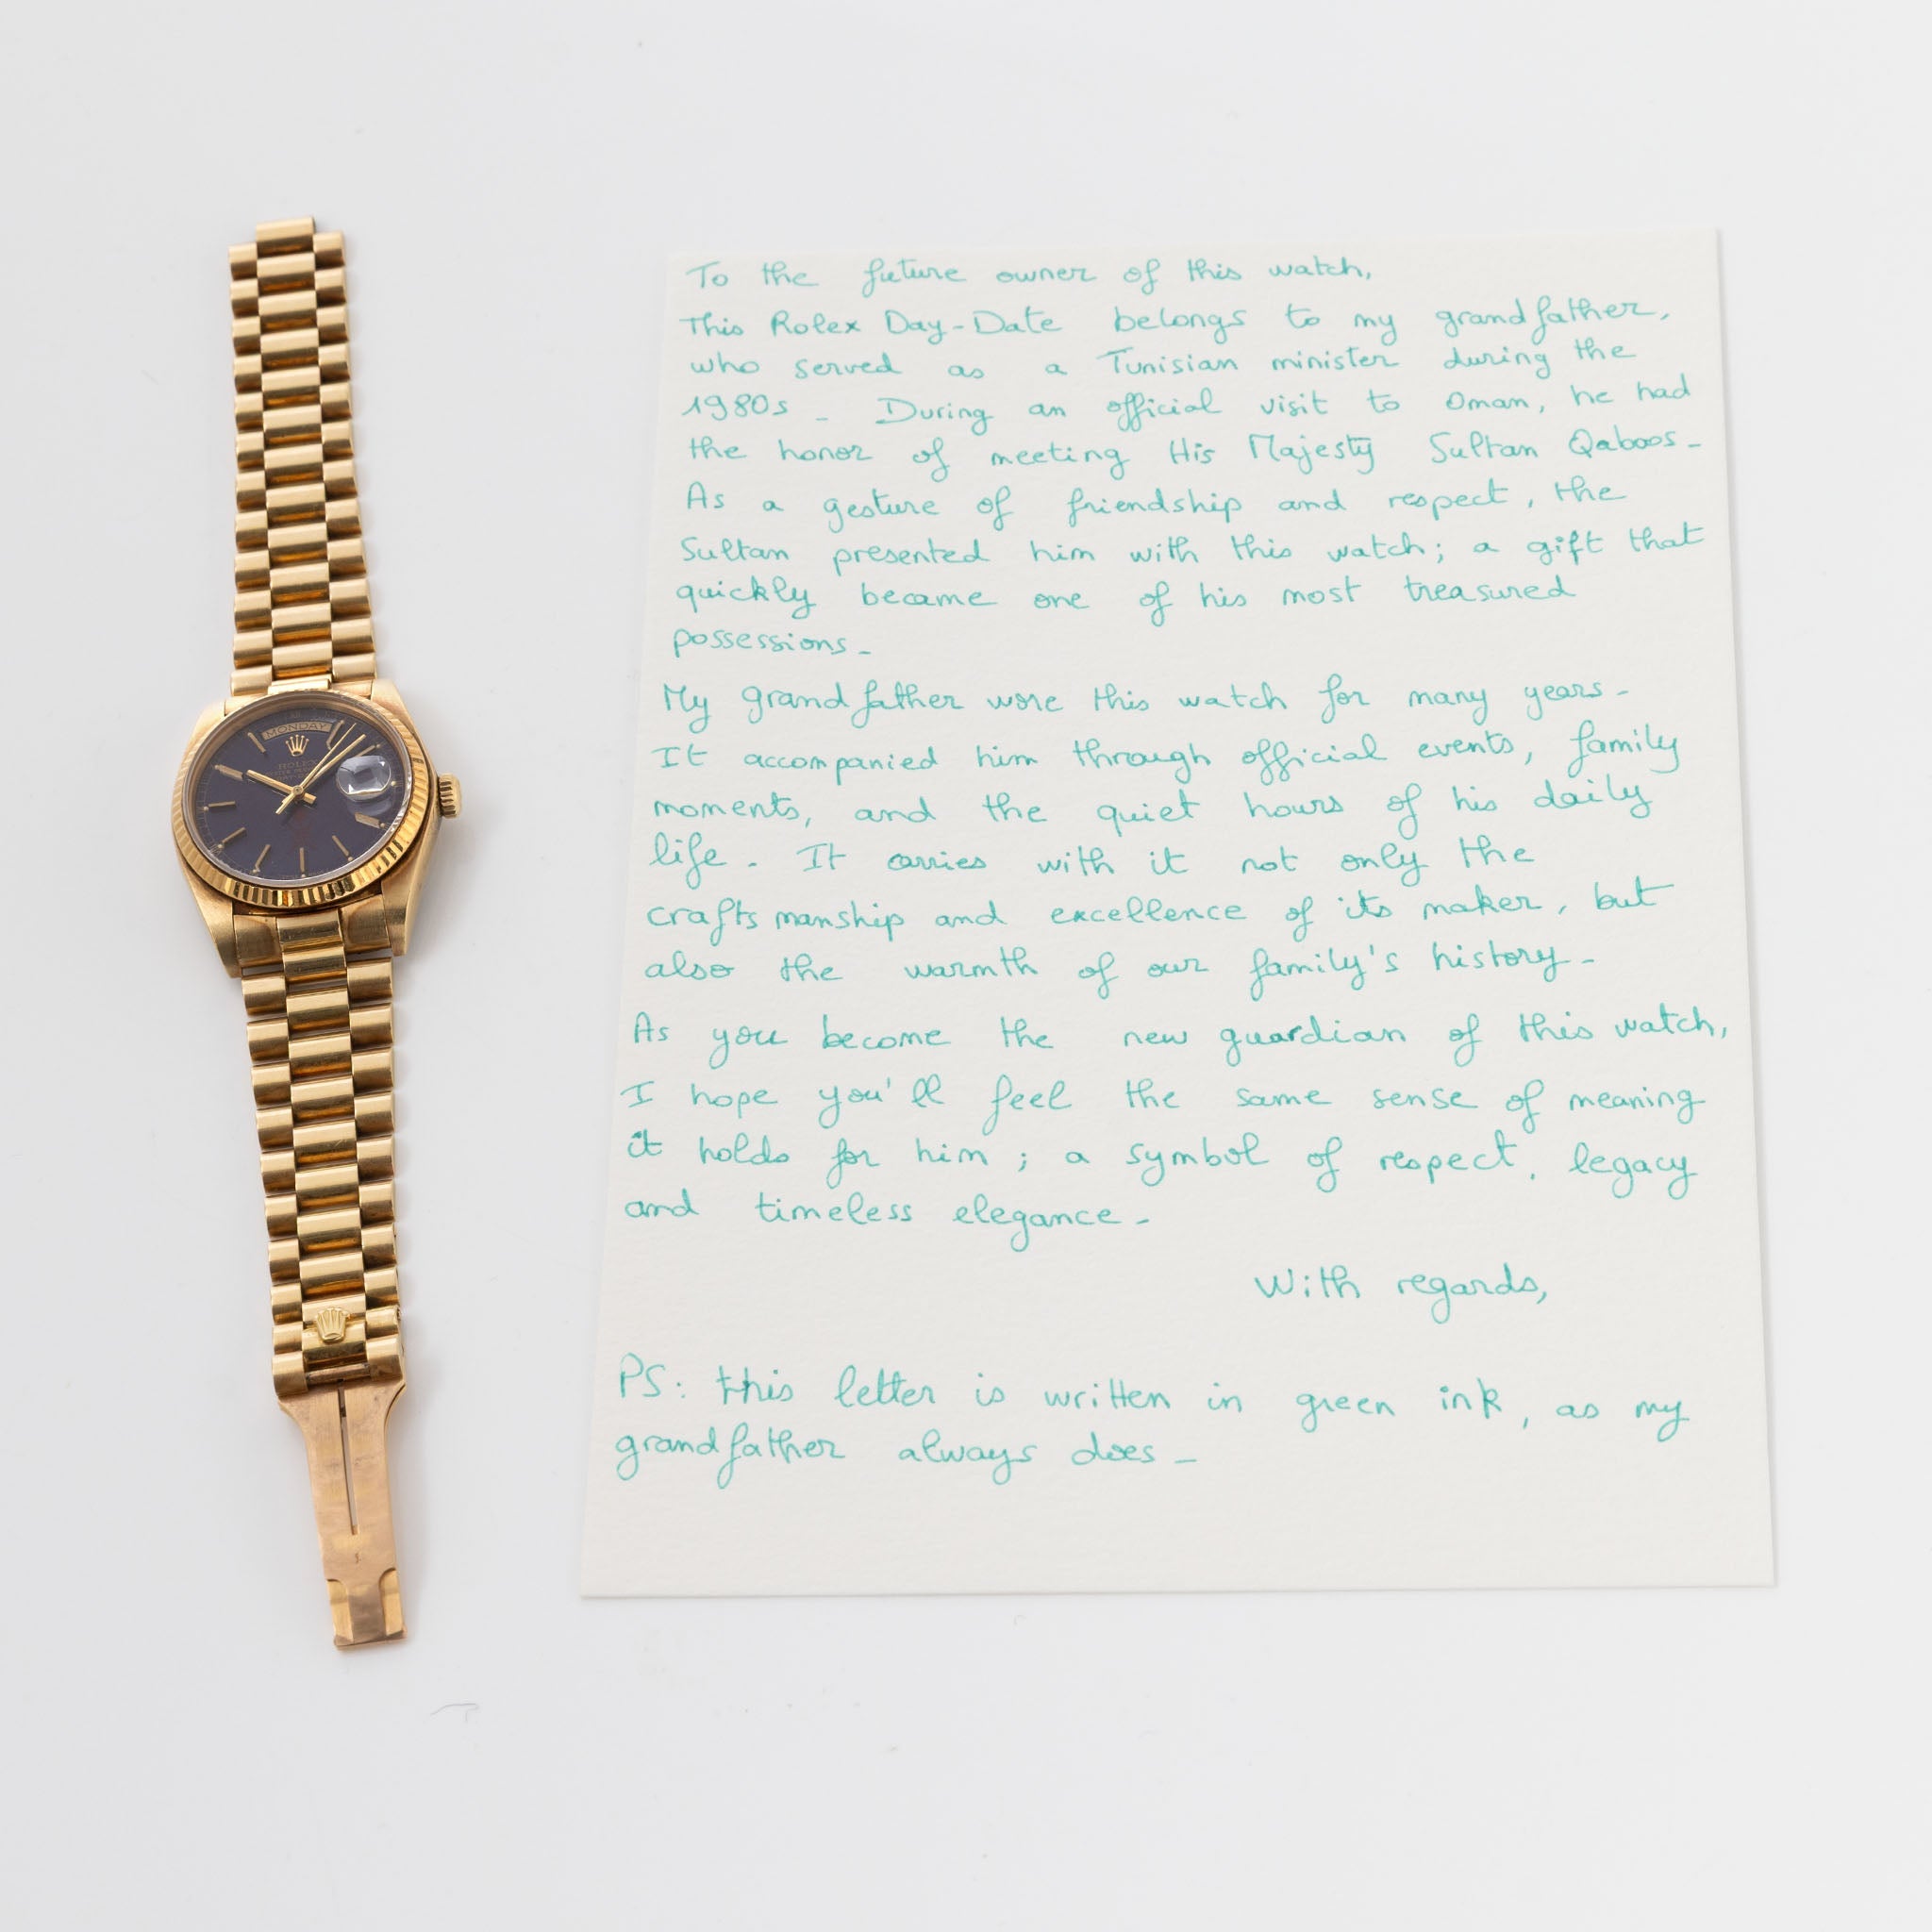 MONDAY
ROLEX
To the future owner of this watch,
This Rolex Day-Date belongs to my grandfather,
who served as a Tunisian minister during the
1980s - During an official visit to Oman, he had
the honor of meeting His Majesty Sultan Qaboos-
As a gesture of friendship and respect, the
Sultan presented him with this watch; a gift that
quickly became one of his most treasured
possessions-
My grandfather wore this watch for many years-
It accompanied him through official events, family
moments, and the quiet hours of his daily
life - It carries with it not only the
craftsmanship and excellence of its maker, but
also the warmth of our family's history-
As you become the new guardian of this watch,
I hope you'll feel the same sense of meaning
it holds for him; a symbol of respect, legacy
and timeless elegance-
With regards,
PS: this letter is written in green ink, as my
grandfather always does-